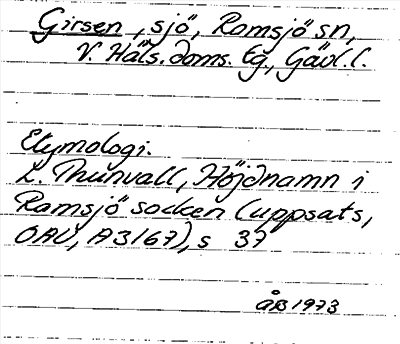 Girsen, sjö, Ramsjö sn,
V. Häls. doms. tg, Gävl. l.
Etymologi.
L. Thunvall, Höjdnamn i
Ramsjö socken (uppsats,
OAU, A3167), s 37
ÅB 1973